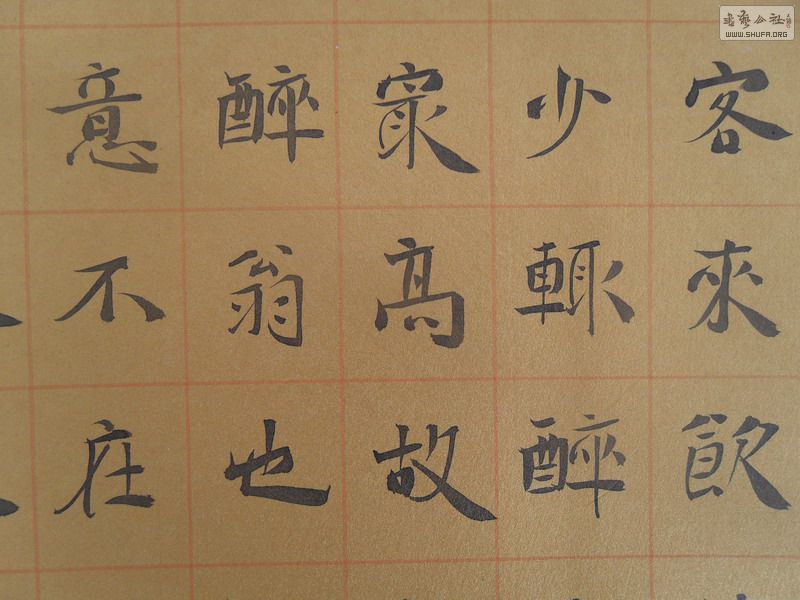 客來飲
少輒醉
冣高故
醉翁也
意不在
书艺公社
WWW.SHUFA.ORG